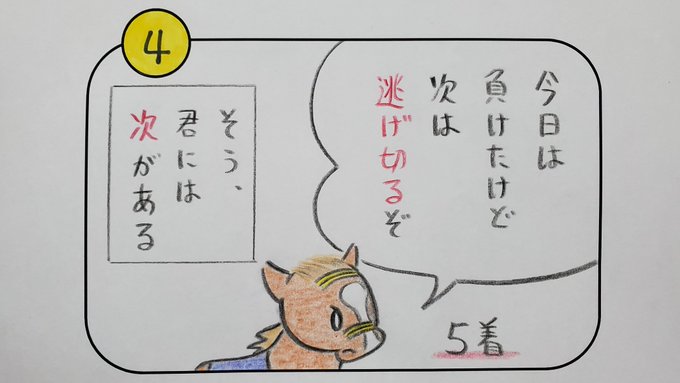 4
今日は
負けたけど
次は
逃げ切るぞ
そう、
君には
次がある
5着